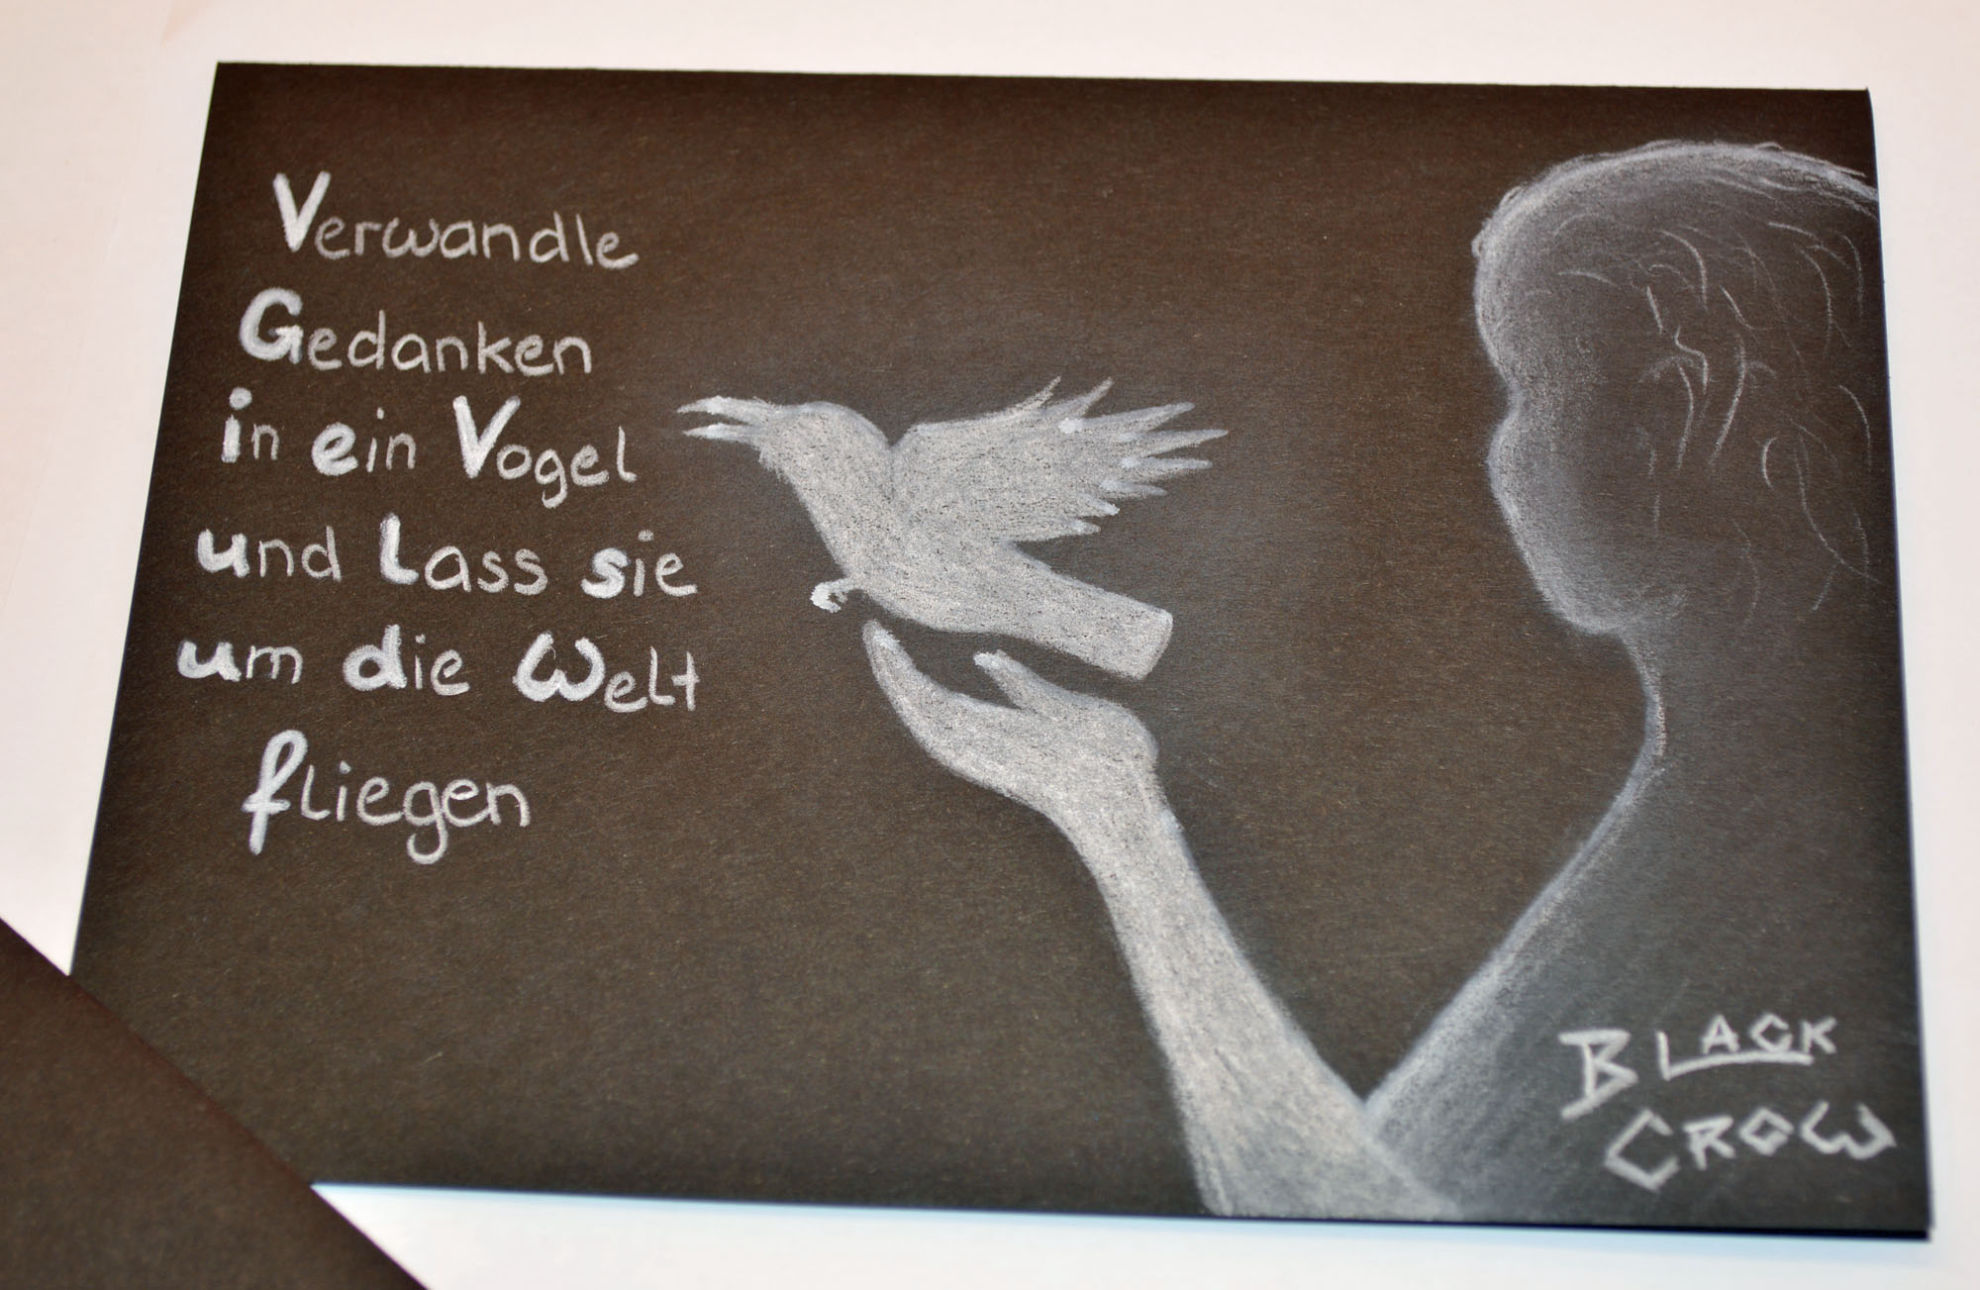 Verwandle
Gedanken
in ein Vogel
und lass sie
um die Welt
fliegen
BLACK
CROW